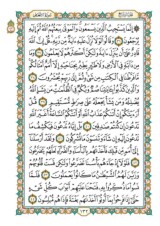 إنما يستجيب الذين يسمعون والموتى يبعثهم الله ثم إليه
يرجعون وقالوا لولا نزل عليه آية من ربه قل إن الله قادر
على أن ينزل آية ولكن أكثرهم لا يعلمون وما من دابة
في الأرض ولا طائر يطير بجناحيه إلا أمم أمثالكم
ما فرطنا في الكتاب من شيء ثم إلى ربهم يحشرون
والذين كذبوا بآياتنا صم وبكم في الظلمات من يشإ الله
يضلله ومن يشأ يجعله على صراط مستقيم قل
أرأيتكم إن أتاكم عذاب الله أو أتتكم الساعة أغير الله
تدعون إن كنتم صادقين بل إياه تدعون فيكشف
ما تدعون إليه إن شاء وتنسون ما تشركون ولقد
أرسلنا إلى أمم من قبلك فأخذناهم بالبأساء والضراء لعلهم
يتضرعون فلولا إذ جاءهم بأسنا تضرعوا ولكن قست
قلوبهم وزين لهم الشيطان ما كانوا يعملون فلما
نسوا ما ذكروا به فتحنا عليهم أبواب كل شيء حتى
إذا فرحوا بما أوتوا أخذناهم بغتة فإذا هم مبلسون
١٣٢